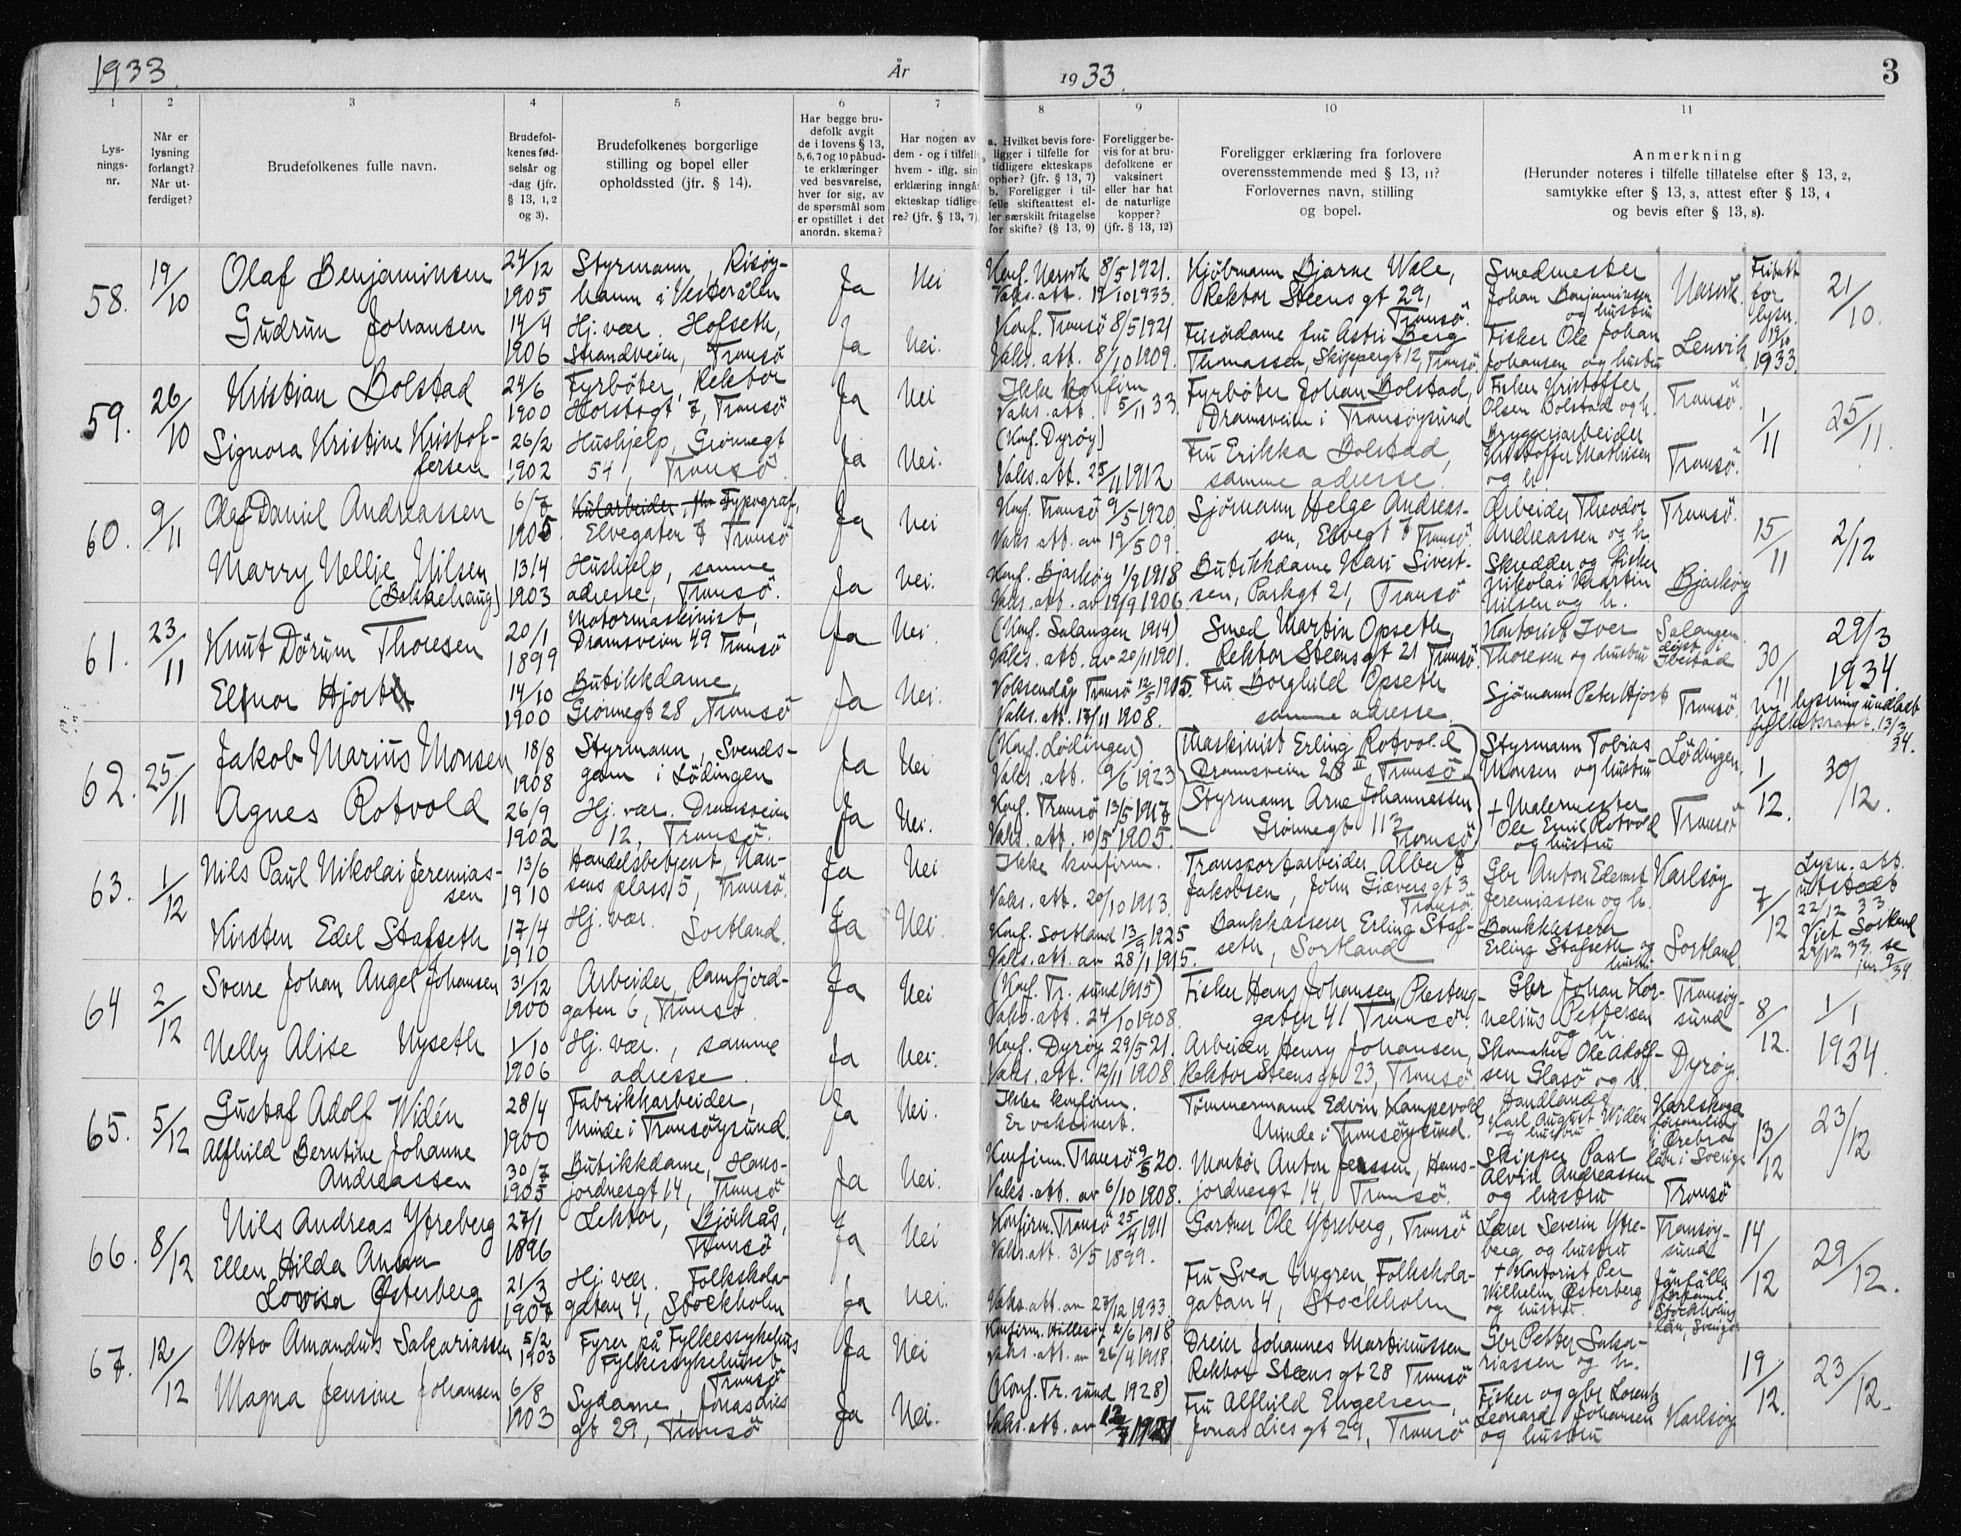 1933. År 1933. 3
1 2 3 4 5 6 7 8 9 10 11
Lys-
nings-
nr.
Når er
lysning
forlangt?
Når ut-
ferdiget?
Brudefolkenes fulle navn.
Brudefol-
kenes fød-
selsår og
-dag (jfr.
§ 13, 1, 2
og 3).
Brudefolkenes borgerlige
stilling og bopel eller
opholdssted (jfr. § 14).
Har begge bru-
defolk avgit
de i lovens § 13,
5, 6, 7 og 10 påbud-
te erklæringer
ved besvarelse,
hver for sig, av
de spørsmål som
er opstillet i det
anordn. skema?
Har nogen av
dem - og i tilfelle
hvem - iflg. sin
erklæring inngått
ekteskap tidlige-
re? (jfr. § 13, 7).
a. Hvilket bevis fore-
ligger i tilfelle for
tidligere ekteskaps
ophør? (jfr. § 13, 7)
b. Foreligger i til-
felle skifteattest el-
ler særskilt fritagelse
for skifte? (§ 13, 9)
Foreligger be-
vis for at bru-
defolkene er
vaksinert
eller har hat
de naturlige
kopper?
(jfr. § 13, 12)
Foreligger erklæring fra forlovere
overensstemmende med § 13, 11?
Forlovernes navn, stilling
og bopel.
Anmerkning
(Herunder noteres i tilfelle tillatelse efter § 13, 2,
samtykke efter § 13, 3, attest efter § 13, 4
og bevis efter § 13, 8).
58. 19/10
Olaf Benjaminsen
24/12 1905
Styrmann, Risøy-
hamn i Vesterålen
Ja Nei
Konf. Narvik 8/5 1921.
Vaks. att. 19/10 1933.
Kjøbmann Bjarne Wale,
Rektor Steens gt 29,
Tromsö.
Smedmester
Johan Benjaminsen
og hustru
Narvik
Fritatt
for
lysn.
19/10
1933.
21/10.
Gudrun Johansen
14/4 1906
Hj. vær. Hofseth,
Strandveien, Tromsö
Ja Nei.
Konf. Tromsö 8/5 1921
Vaks. att. 8/10 1909.
Frisødame fru Astri Berg
Thomassen, Skippergt 12, Tromsö.
Fisker Ole Johan
Johansen og hustru
Lenvik
59. 26/10
Kristian Bolstad
24/6 1900
Fyrbøter, Rektor
Horstsgt 7, Tromsö
Ja Nei
Ikke konfirm.
Vaks. att. 5/11 33.
Fyrbøter Johan Bolstad,
Dramsveien i Tromsøysund
Fisker Kristoffer
Olsen Bolstad og h.
Tromsö.
1/11
25/11.
Signora Kristine Kristof-
fersen
26/2 1902
Hushjelp, Grønnegt
54, Tromsö.
Ja Nei.
(Konf. Dyrøy)
Vaks. att. 25/11 1912
Fru Erikka Bolstad,
samme adresse.
Bryggeriarbeider
Kristoffer Mathisen
og h.
Tromsö.
60. 9/11
Olaf Daniel Andreassen
6/7 1905
Typograf,
Elvegaten 7 Tromsö
Ja Nei
Konf. Tromsö 9/5 1920.
Vaks. att. av 19/5 09.
Sjømann Helge Andreas-
sen, Elvegt 7 Tromsö.
Arbeider Theodor
Andreassen og h.
Tromsö.
15/11
2/12
Marry Nellie Nilsen
(Bakkehaug)
13/4 1903
Hushjelp, samme
adresse, Tromsö.
Ja Nei.
Konf. Bjarkøy 1/9 1918
Vaks. att. av 19/9 1906
Butikkdame Kari Sivert-
sen, Parkgt 21, Tromsö
Skredder og fisker
Nikolai Martin
Nilsen og h.
Bjarkøy
61. 23/11
Knut Dörum Thoresen
20/1 1899
Motormaskinist,
Dramsveien 49 Tromsö
Ja Nei.
(Konf. Salangen 1914)
Vaks. att. av 20/11 1901.
Smed Martin Opseth,
Rektor Steens gt 21 Tromsö.
Kontorist Iver
Thoresen og hustru
Salangen
døpt i
Ibestad
30/11
29/3
1934
Elinor Hjorth
14/10 1900
Butikkdame,
Grønnegt 28, Tromsö
Ja Nei.
Voksendåp Tromsö 12/5 1915.
Vaks. att. 17/11 1908.
Fru Borghild Opseth
samme adresse.
Sjømann Peter Hjort
Tromsö.
ny lysning undlatt
13/3
34.
62. 25/11
Jakob Marius Monsen
18/8 1908
Styrmann, Svends-
gam i Lödingen
Ja Nei
(Konf. Lödingen)
Vaks. att. 9/6 1923
(Maskinist Erling Rotvold
Dramsveien 28 II Tromsö)
Styrmann Tobias
Monsen og hustru
Lödingen.
1/12.
30/12.
Agnes Rotvold
26/9 1902
Hj. vær. Dramsveien
12, Tromsö.
Ja Nei.
Konf. Tromsö 13/5 1917
Vaks. att. 10/5 1905.
(Styrmann Arne Johannessen
Grønnegt 113 Tromsö)
+ Malermester
Ole Emil Rotvold
og hustru
Tromsö
63. 1/12
Nils Paul Nikolai Jeremias-
sen
13/6 1910
Handelsbetjent, Nan-
sens plass 5, Tromsö.
Ja Nei
Ikke konfirm.
Vaks. att. 20/10 1913.
Transportarbeider Albert
Jakobsen, John Giævers gt 3
Tromsö.
Gbr Anton Edevart
Jeremiassen og h.
Karlsöy
7/12
Lysn. att.
utstedt
22/12 33
Viet Sortland
Kirsten Edel Stafseth
17/4 1910
Hj. vær.
Sortland.
Ja Nei.
Konf. Sortland 13/9 1925
Vaks. att. av 28/1 1915.
Bankkasserer Erling Staf-
seth, Sortland
Bankkasserer
Erling Stafseth og
hustru
Sortland.
64 2/12
Sverre Johan Angel Johansen
31/12 1900
Arbeider, Ramfjord-
gaten 6, Tromsö.
Ja Nei
(Konf. Tr. sund 1915)
Vaks. att. 24/10 1908.
Fisker Hans Johansen,
gaten 41 Tromsö.
Gbr Johan Kor-
nelius Pettersen
og h.
Tromsøy-
sund
8/12.
1/1
1934.
Nelly Alise Nyseth
1/10 1906
Hj. vær., samme
adresse.
Ja Nei.
Konf. Dyrøy 29/5 21.
Vaks. att. 12/11 1908
Arbeider Henry Johansen,
Rektor Steens gt 23, Tromsö.
Skomaker Ole Adolf-
sen Glasö og h.
Dyrøy.
65. 5/12
Gustaf Adolf Widén
28/4 1900
Fabrikkarbeider,
Minde i Tromsøysund.
Ja Nei.
Ikke konfirm.
Er vaksinert.
Tømmermann Edvin Kampevold
Minde i Tromsøysund.
Handlande
Karl August Widén
og hustru
Karlskoga
församling
i Örebro
län i Sverige
13/12
23/12
Alfhild Berntine Johanne
Andreassen
30/7 1905
Butikkdame, Hans-
jordnesgt 14, Tromsö
Ja Nei.
Konfirm. Tromsö 9/5 20.
Vaks. att. av 6/10 1908.
Montør Anton Jenssen, Hans-
jordnesgt 14, Tromsö.
Skipper Paul
Alvin Andreassen
og hustru
Tromsö
66. 8/12
Nils Andreas Ytreberg
27/1 1896
Lektor, Bjørkås,
Tromsö
Ja Nei
Konfirm. Tromsö 25/4 1911
Vaks. att. 31/5 1899.
Gartner Ole Ytreberg, Tromsö
Lærer Severin Ytre-
berg og hustru
Tromsøy-
sund
14/12
29/12.
Ellen Hilda Anna
Lovisa Österberg
21/3 1907
Hj. vær. Folkskola-
gatan 4, Stockholm
Ja Nei.
Vaks. att. av 27/12 1933
Fru Svea Nygren, Folkskola-
gatan 4, Stockholm
+ Kontorist Per
Wilhelm Österberg
og hustru.
Järfälla
församl.
Stockholms
län, Sverige
67. 12/12
Otto Amandus Sakariassen
5/2 1903
Fyrer på Fylkessykehus
Fylkessykehuset
Tromsö
Ja Nei
Konfirm. Hillesøy 2/6 1918
Vaks. att. av 26/4 1918.
Dreier Johannes Martinussen
Rektor Steens gt 28 Tromsö
Gbr Petter Saka-
riassen og h.
19/12.
23/12.
Magna Jensine Johansen
6/8 1903
Sydame, Jonas Lies
gt 29, Tromsö
Ja Nei.
(Konf. Tr. sund 1928)
Vaks. att. av 12/7 1921
Fru Alfhild Engelsen,
Jonas Lies gt 29, Tromsö
Fisker og gbr Lorentz
Leonard Johansen
og hustru
Karlsøy